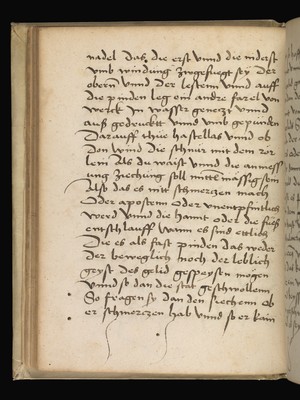 nadel das die erst vnnd die niderst
vmb windung zugefuegt sey der
obern vnnd der lesten vnnd auff
die pinden leg ein andre fazel von
werck in wasser genezt vnnd
auß gedruckt vnnd vmb gepunden
Darauff thue hastellas vnnd ob
den wind die schnur mit dem ror
lein Als du waist vnnd die
ung ziechung soll mittl massig sein
Also das es nitt schmertzen mach
Oder apostem Oder vnentpfintlich
werd vnnd die hannt oder die fueß
entschlauff wann es sind ettlich
Die es als fast pinden das weder
der beweglich noch der leblich
geyst des gelid gespeysen mögen
vnnd so dan die stat geschwollenn
So fragen sy dan den siechenn ob
er schmertzen hab vnnd so er kain